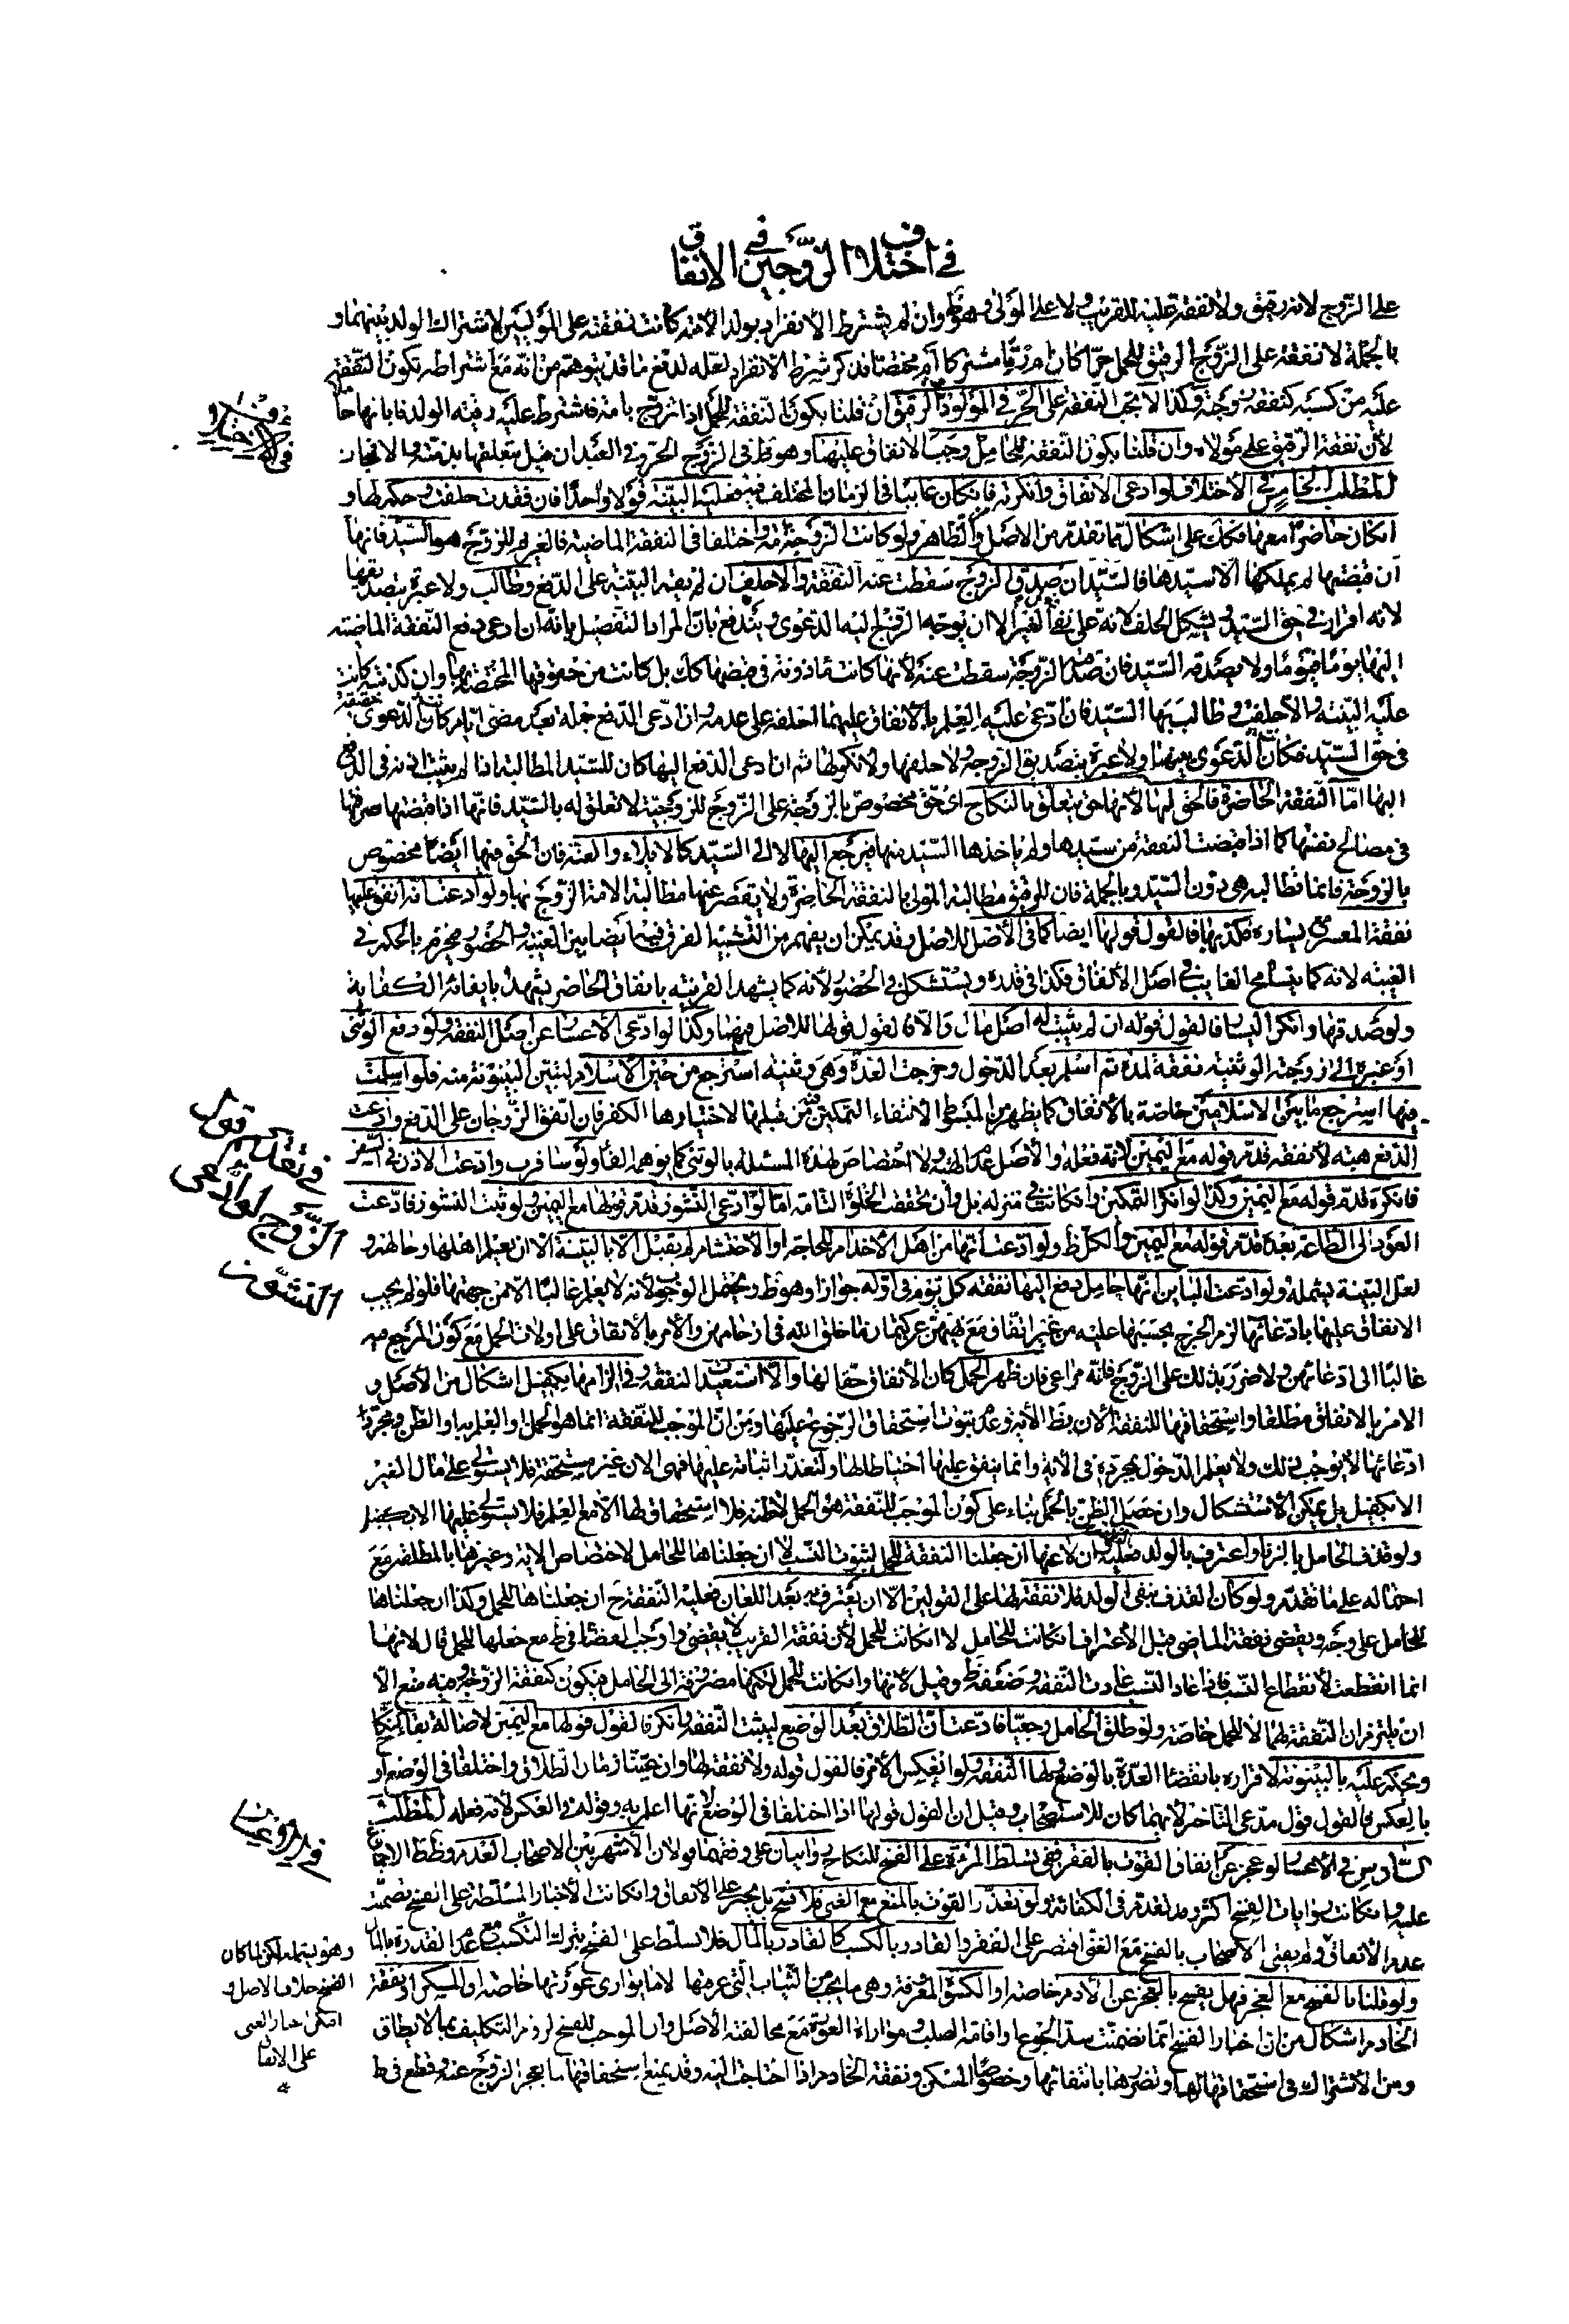 في اختلاف الزوجين في الانفاق
على الزوج لانه رقيق ولا نفقة عليه للقريب ولا على المولى وهو ظ وان لم يشترط الانفراد بولد الامة كانت نفقته على الموليين لاشتراك الولد بينهما و
بالجملة لا نفقة على الزوج الرقيق للحمل حرا كان ام رقا مشتركا ام مختصا فذكر شرط الانفراد لعله لدفع ما قد يتوهم من انه مع اشتراطه تكون النفقة
عليه من كسبه كنفقة زوجته وكذا لا تجب النفقة على الحر في المولود الرقيق ان قلنا بكون النفقة للحمل اذا تزوج بامة فاشترط عليه رقية الولد فابانها حاملا
لان نفقة الرقيق على مولاه وان قلنا بكون النفقة للحامل وجب الانفاق عليها وهو ظ في الزوج الحر وفي العبد ان قيل بتعلقها بذمته والا فيجب ان
المطلب الخامس في الاختلاف لو ادعى الانفاق وانكرته فان كان غائبا في الزمان المختلف فيه فعليه البينة قولا واحدا فان فقدت حلفت وحكم لها و
ان كان حاضرا معها فكك على اشكال مما تقدم من الاصل والظاهر ولو كانت الزوجة امة واختلفا في النفقة الماضية فالغريم للزوج هو السيد فانها
ان قبضتها لم يملكها الا سيدها فالسيد ان صدق الزوج سقطت عنه النفقة والا حلف ان لم يقم البينة على الدفع وطالب ولا عبرة بتصديقها
لانه اقرار في حق السيد ويشكل الحلف لانه على نفي فعل الغير الا ان يوجه اليه الدعوى ويندفع بان المراد التفصيل بانه ان ادعى دفع النفقة الماضية
اليها يوما فيوما ولا يصدقه السيد فان صدقته الزوجة سقطت عنه لانها كانت مأذونة في قبضها كك بل كانت من حقوقها المختصة بها وان كذبته كانت
عليه البينة والا حلفت وطالب بها السيد فان ادعى عليه العلم بالانفاق عليها احلفه على عدمه وان ادعى الدفع جملة بعد مضي ايام كان الدعوى
في حق السيد فكان الدعوى بينهما ولا عبرة بتصديق الزوجة ولا حلفها ولا نكولها ثم ان ادعى الدفع اليها كان للسيد المطالبة اذا لم يثبت اذنه في الدفع
اليها اما النفقة الحاضرة فالحق لها لانها حق يتعلق بالنكاح اي حق مخصوص بالزوجة على الزوج للزوجية لا تعلق له بالسيد فانها اذا قبضتها صرفتها
في مصالح نفسها كما اذا قبضت النفقة من سيدها ولم ياخذها السيد منها فيرجع اليها لا الى السيد كالايلاء والعنة فان الحق فيها ايضا مخصوص
بالزوجة فانما تطالبه هي دون السيد وبالجملة فان للرقيق مطالبة المولى بالنفقة الحاضرة ولا يقصر عنها مطالبة الامة الزوج بها ولو ادعت انه انفق عليها
نفقة المعسر مع يساره فكذبها فالقول قولها ايضا كما في الاصل للاصل وقد يمكن ان يفهم من التشبيه الفرق فيه ايضا بين الغيبة والحضور فيجزم بالحكم في
الغيبة لانه كما يتسامح الغايب في اصل الانفاق فكذا في قدره ويستشكل في الحضور لانه كما يشهد القرينة بانفاق الحاضر يشهد بايفائه الكفاية
ولو صدقها وانكر اليسار فالقول قوله ان لم يثبت له اصل مال والا فالقول قولها للاصل فيهما وكذا لو ادعى الاعسار عن اصل النفقة ولو دفع الوثني
او غيره الى زوجته الوثنية نفقة لمدة ثم اسلم بعد الدخول وخرجت العدة وهي وثنية استرجع من حين الاسلام لتبين البينونة منه فلو اسلمت
فيها استرجع ما بين الاسلامين خاصة بالاتفاق كما يظهر من المبسوط لانتفاء التمكين من قبلها لاختيارها الكفر فان اتفق الزوجان على الدفع وادعت
الدفع هبة لا نفقة قدم قوله مع اليمين لانه فعله والاصل عدم الهبة ولا اختصاص لهذه المسئلة بالوثني كما يوهمه الفاء ولو سافرت وادعت الاذن في السفر
فانكره قدم قوله مع اليمين وكذا لو انكر التمكين وان كانت في منزله بل وان تحققت الخلوة التامة اما لو ادعى النشوز قدم قولها مع اليمين ولو ثبت النشوز فادعت
العود الى الطاعة بعده قدم قوله مع اليمين والكل ظ ولو ادعت انها من اهل الاخدام للحاجة او الاحتشام لم يقبل الا بالبينة الا ان يعلم اهلها وحالهم و
لعل البينة يشمله ولو ادعت البائن انها حامل دفع اليها نفقة كل يوم في اوله جوازا وهو ظ ويحتمل الوجوب لانه لا يعلم غالبا الا من جهتها فلو لم يجب
الانفاق عليها بادعائها لزم الحرج بحبسها عليه من غير انفاق مع نهيهن عن كتمان ما خلق الله في ارحامهن والامر بالانفاق على اولات الحمل مع كون المرجع فيه
غالبا الى ادعائهن ولا ضرر بذلك على الزوج فانه مراعى فان ظهر الحمل كان الانفاق حقا لها والا استعيدت النفقة وفي الزامها بكفيل اشكال من الاصل و
الامر بالانفاق مطلقا واستحقاقها للنفقة الان بظ الاية وعدم ثبوت استحقاق الرجوع عليها ومن ان الموجب للنفقة انما هو الحمل او العلم به او الظن ومجرد
ادعائها لا يوجب ذلك ولا يعلم الدخول بمجرده في الاية وانما ينفق عليها احتياطا لها ولتعذر اثباته عليها فهي الان غير مستحقة فلا يستولى على مال الغير
الا بكفيل بل يمكن الاستشكال وان حصل الظن بالحمل بناء على كون الموجب للنفقة هو الحمل لا ظنه فلا استحقاق لها الا مع العلم فلا يستولى عليها الا بكفيل
ولو قذف الحامل بالزنا واعترف بالولد فعليه النفقة وان لاعنها ان جعلنا النفقة للحمل لثبوت النسب لا ان جعلناها للحامل لاختصاص الاية وغيرها بالمطلقة مع
احتماله على ما تقدم ولو كان القذف بنفي الولد فلا نفقة لها على القولين الا ان يعترف به بعد اللعان فعليه النفقة ح ان جعلناها للحمل وكذا ان جعلناها
للحامل على وجه ويقضي نفقة الماضي قبل الاعتراف ان كانت للحامل لا ان كانت للحمل لان نفقة القريب لا يقضى واوجب القضاء في ط مع جعلها للحمل قال لانها
انما انقطعت لانقطاع النسب فاذا عاد النسب عادت النفقة وضعفه ظ وقيل لانها وان كانت للحمل لكنها مصروفة الى الحامل فيكون كنفقة الزوجة وفيه منع الا
ان يلتزم ان النفقة لها لا للحمل خاصة ولو طلق الحامل رجعيا فادعت ان الطلاق بعد الوضع ليثبت النفقة وانكر فالقول قولها مع اليمين لاصالة بقاء النكاح
ويحكم عليه بالبينونة لاقراره بانقضاء العدة بالوضع ولها النفقة ولو انعكس الامر فالقول قوله ولا نفقة لها وان عينا زمان الطلاق واختلفا في الوضع او
بالعكس فالقول قول مدعي التاخر لايهما كان للاستصحاب وقيل ان القول قولها اذا اختلفا في الوضع لانها اعلم به وقوله في العكس لانه فعله المطلب
السادس في الاعسار لو عجز عن انفاق القوت بالفقر ففي تسلط المرئة على الفسخ للنكاح روايتان على وفقهما قولان الاشهر بين الاصحاب العدم وظ ط الاجماع
عليه وان كانت روايات الفسخ اكثر وقد تقدم في الكفائة ولو تعذر القوت بالمنع مع الغنى فلا فسخ بل يجبر على الانفاق وان كانت الاخبار المسلطة على الفسخ تضمنت
عدم الانفاق ولم يفتى الاصحاب بالفسخ مع الغنى اقتصر على الفقر والقادر بالكسب كالقادر بالمال فلا تسلط على الفسخ بترك التكسب مع عدم القدرة بالمال
ولو قلنا بالفسخ مع العجز فهل يفسخ بالعجز عن الادم خاصة او الكسوة المعروفة وهي ما يجب من الثياب التي عرفتها لا ما يوارى عورتها خاصة او المسكن او نفقة
الخادم اشكال من ان اخبار الفسخ انما تضمنت سد الجوع واقامة الصلب ومواراة العورة مع مخالفته الاصل وان الموجب للفسخ لزوم التكليف بما لا يطاق
ومن الاشتراك في استحقاقها لها وتضررها بانتفائها وخصوصا المسكن ونفقة الخادم اذا احتاجت اليه وقد يمنع استحقاقها ما يعجز الزوج عنه وقطع في ط
في تقديم قول
الزوج لو ادعى
النشوز
وهو يشمله لكن لما كان
الفسخ خلاف الاصل و
امكن اجبار الغني
على الانفاق